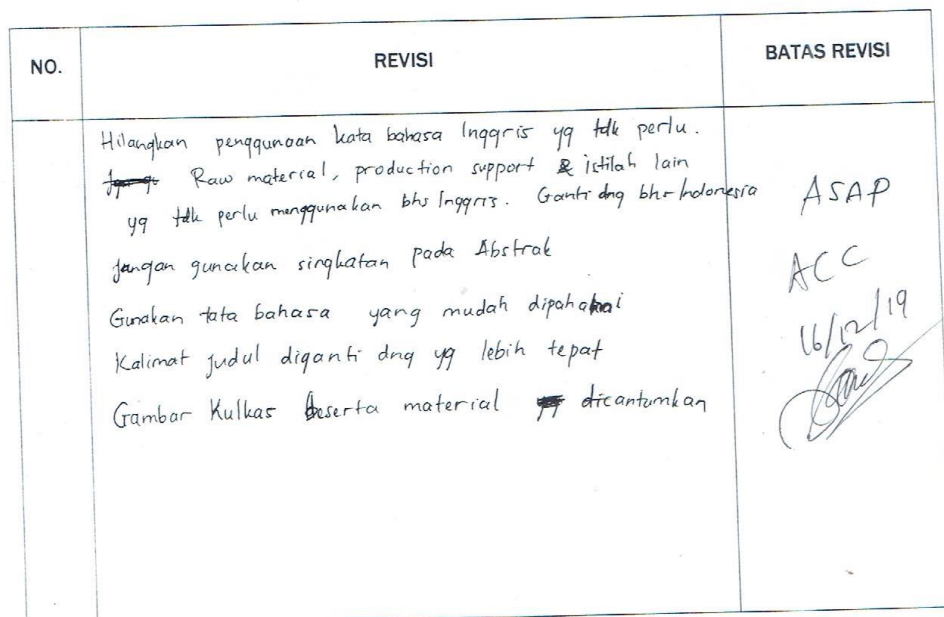 NO.
REVISI
BATAS REVISI
Hilangkan penggunaan kata bahasa Inggris yg tdk perlu.
Raw material, production support & istilah lain
yg tdk perlu menggunakan bhs Inggris. Ganti dng bhs Indonesia
Jangan gunakan singkatan pada Abstrak
Gunakan tata bahasa yang mudah dipahami
Kalimat judul diganti dng yg lebih tepat
Gambar Kulkas beserta material dicantumkan
ASAP
ACC
16/12/19